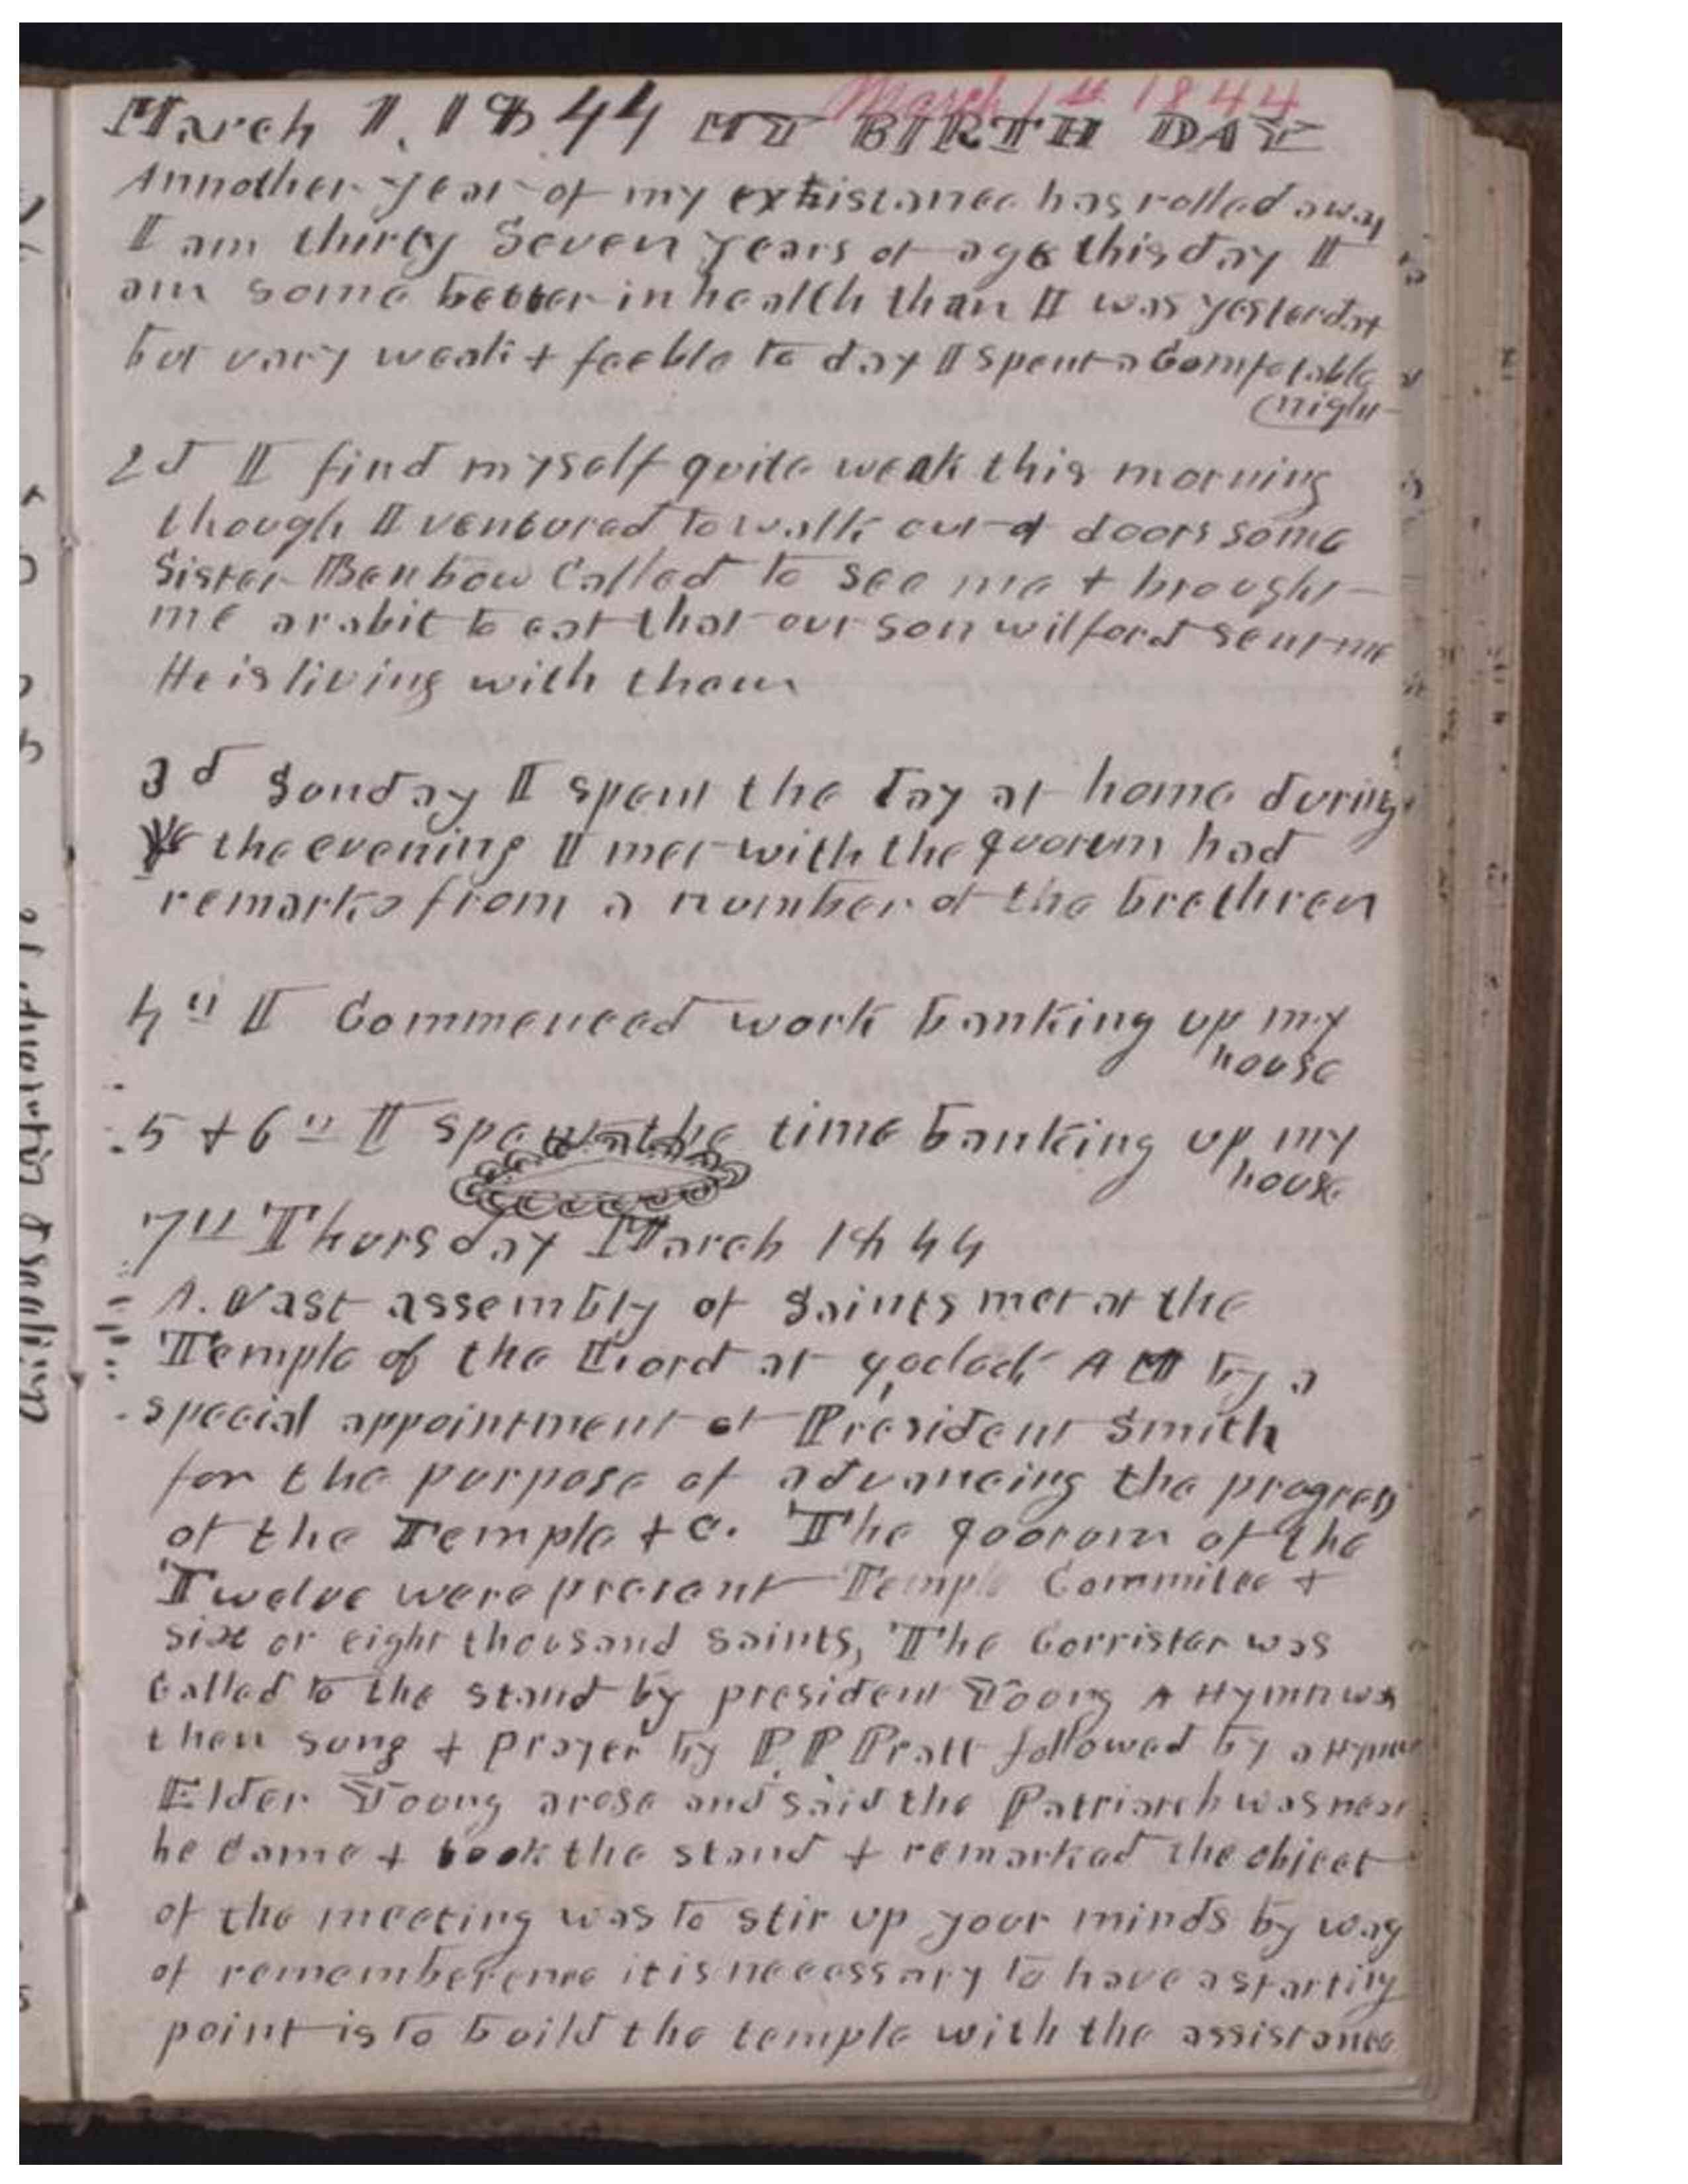 March 1st 1844
March 1, 1844 MY BIRTH DAY
Annother year of my exhistance has rolled away
I am thirty Seven years of age this day I
am some better in health than I was yesterday
but vary weak + feeble to day I spent a Comfotable
night
2d I find myself quite weak this morning
though I ventured to walk out of doors some
Sister Benbow Called to see me + brought
me a rabit to eat that our son wilford sent me
He is living with them
3d Sunday I spent the day at home during
the evening I met with the quorum had
remarks from a number of the brethren
4th I Commenced work banking up my
house
5 + 6th I spent the time banking up my
house
7th Thursday March 1844
A. Vast assembly of Saints met at the
Temple of the Lord at 9, oclock A M by a
special appointment of President Smith
for the purpose of advancing the progress
of the Temple + c. The quorum of the
Twelve were present Temple Commitee +
six or eight thousand saints, The Corrister was
Called to the stand by president Young A Hymn was
then sung + prayer by P. P. Pratt followed by a Hymn
Elder Young arose and said the Patriarch was near
he came + took the stand + remarked the object
of the meeting was to stir up your minds by way
of rememberence it is necessary to have a starting
point is to build the temple with the assistance